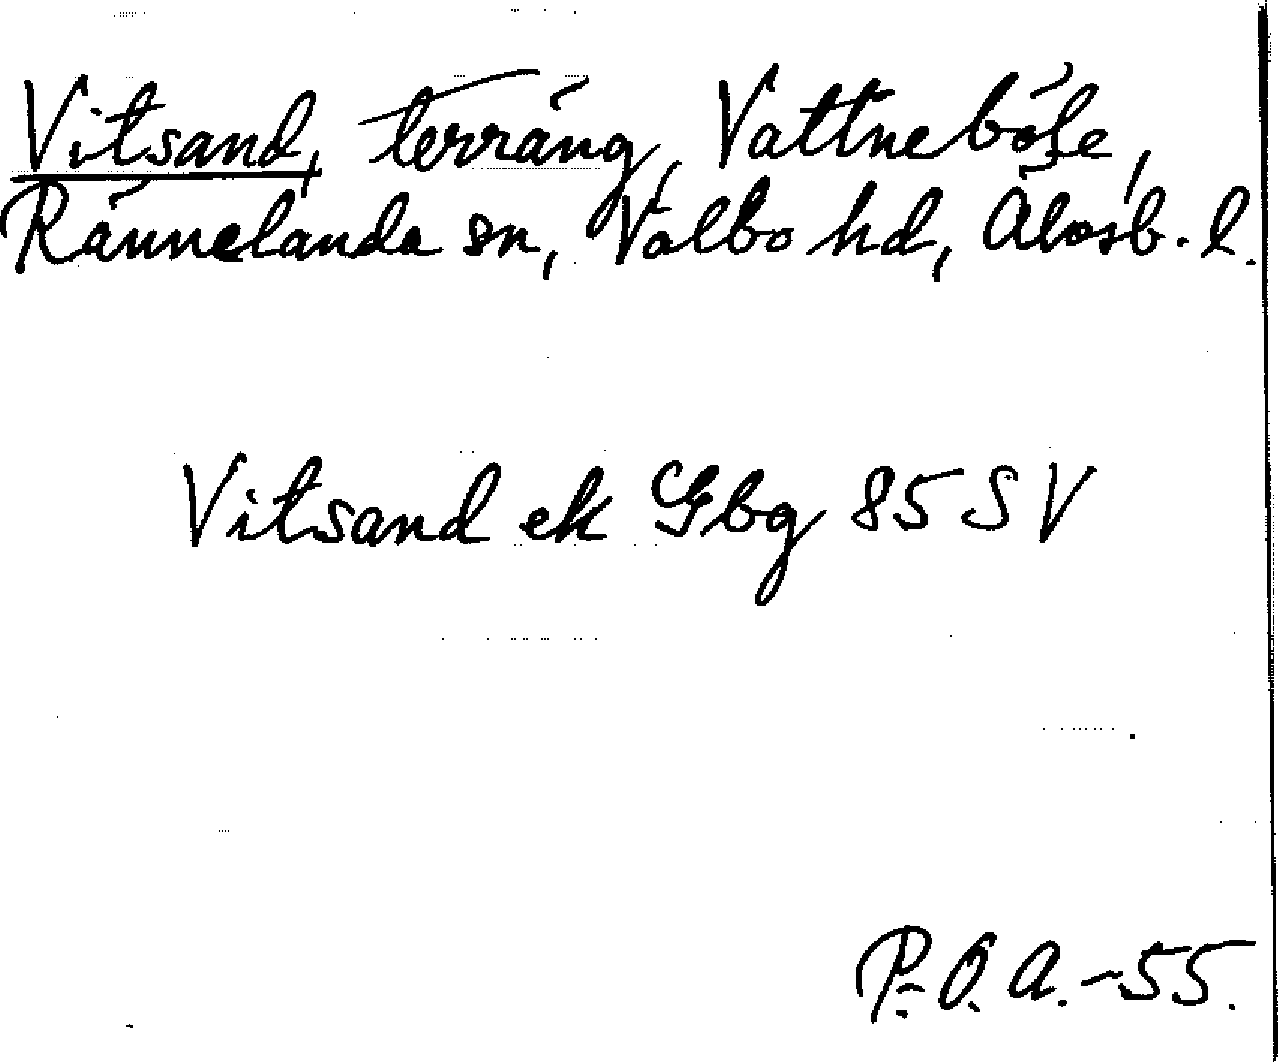 Vitsand, terräng, Vattneböle,
Rännelanda sn, Valbo hd, Älvsb. l.
Vitsand ek Gbg 85 SV
P. O. A. -55.